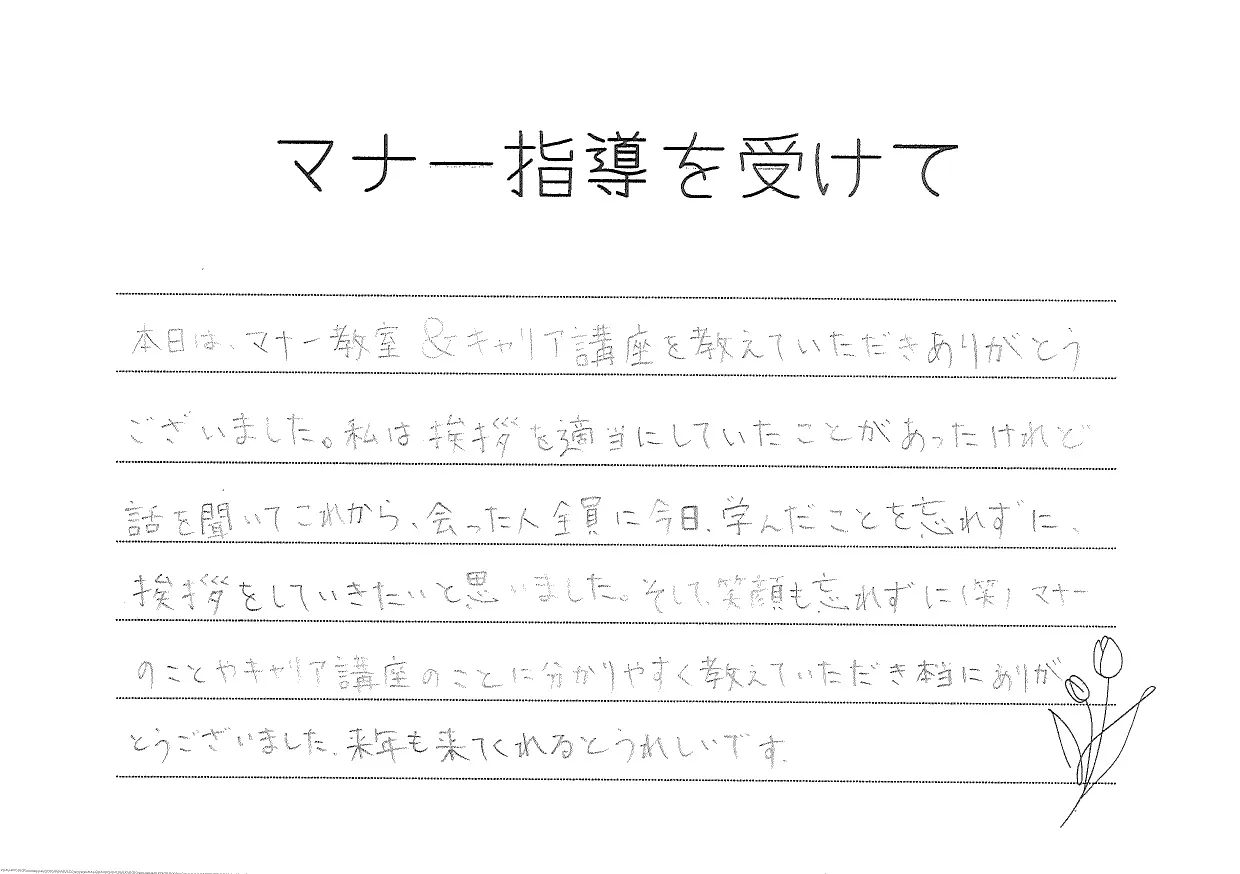 マナー指導を受けて
本日は、マナー教室&キャリア講座を教えていただきありがとう
ございました。私は挨拶を適当にしていたことがあったけれど
話を聞いてこれから、会った人全員に今日、学んだことを忘れずに、
挨拶をしていきたいと思いました。そして、笑顔も忘れずに(笑)マナー
のことやキャリア講座のことに分かりやすく教えていただき本当にありが
とうございました。来年も来てくれるとうれしいです。